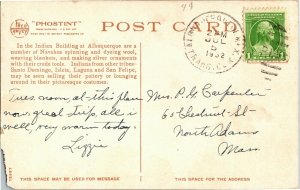 "PHOSTINT"
POST CARD
In the Indian Building at Albuquerque are a
number of Navahos spinning and dyeing wool,
weaving blankets, and making silver ornaments
with their crude tools. Indians from other tribes—
Santo Domingo, Isleta, Laguna and San Felipe,
may be seen selling their pottery or lounging
around in their picturesque costumes.
Tues. noon, at this place
now, great trip, all is
well, very warm today.
Lizzie
JUL
5
1932
Mrs. P. G. Carpenter
61 Chestnut St
North Adams
Mass.
THIS SPACE MAY BE USED FOR MESSAGE
THIS SPACE FOR THE ADDRESS